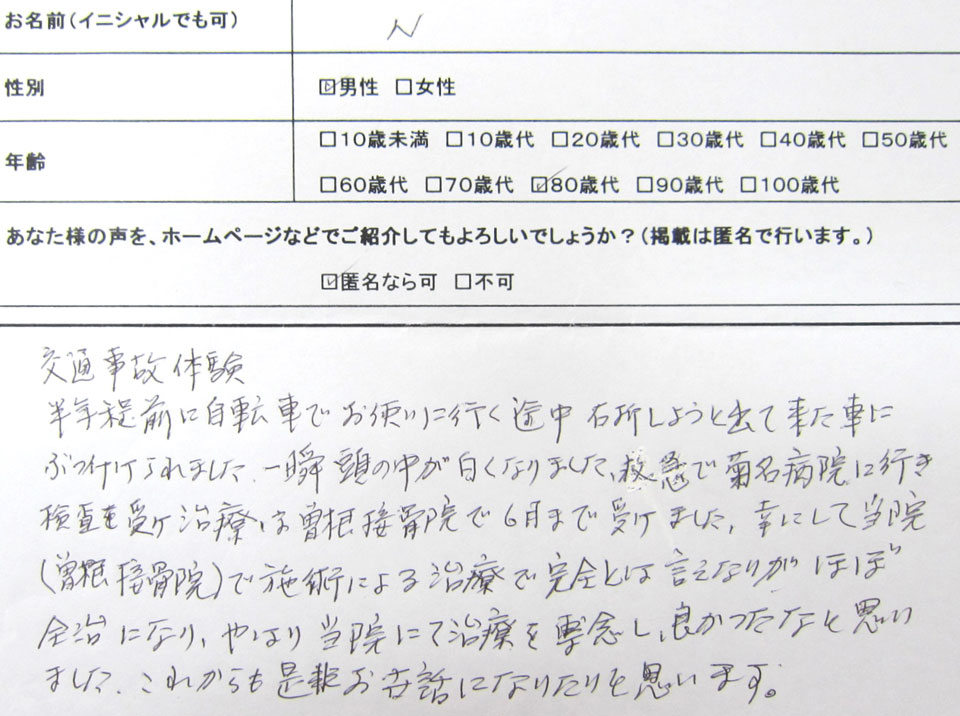 お名前(イニシャルでも可) N
性別 ☑男性 □女性
年齢 □10歳未満 □10歳代 □20歳代 □30歳代 □40歳代 □50歳代
□60歳代 □70歳代 ☑80歳代 □90歳代 □100歳代
あなた様の声を、ホームページなどでご紹介してもよろしいでしょうか?(掲載は匿名で行います。)
☑匿名なら可 □不可
交通事故体験
半年程前に自転車でお使いに行く途中 右折しようと出て来た車に
ぶつ付けられました、一瞬頭の中が白くなりました、救急で菊名病院に行き
検査を受け治療は曽根接骨院で6月まで受けました、幸にして当院
(曽根接骨院)で施術による治療で完全とは言えないがほぼ
全治になり、やはり当院にて治療を専念し、良かったなと思い
ました、これからも是非お世話になりたいと思います。